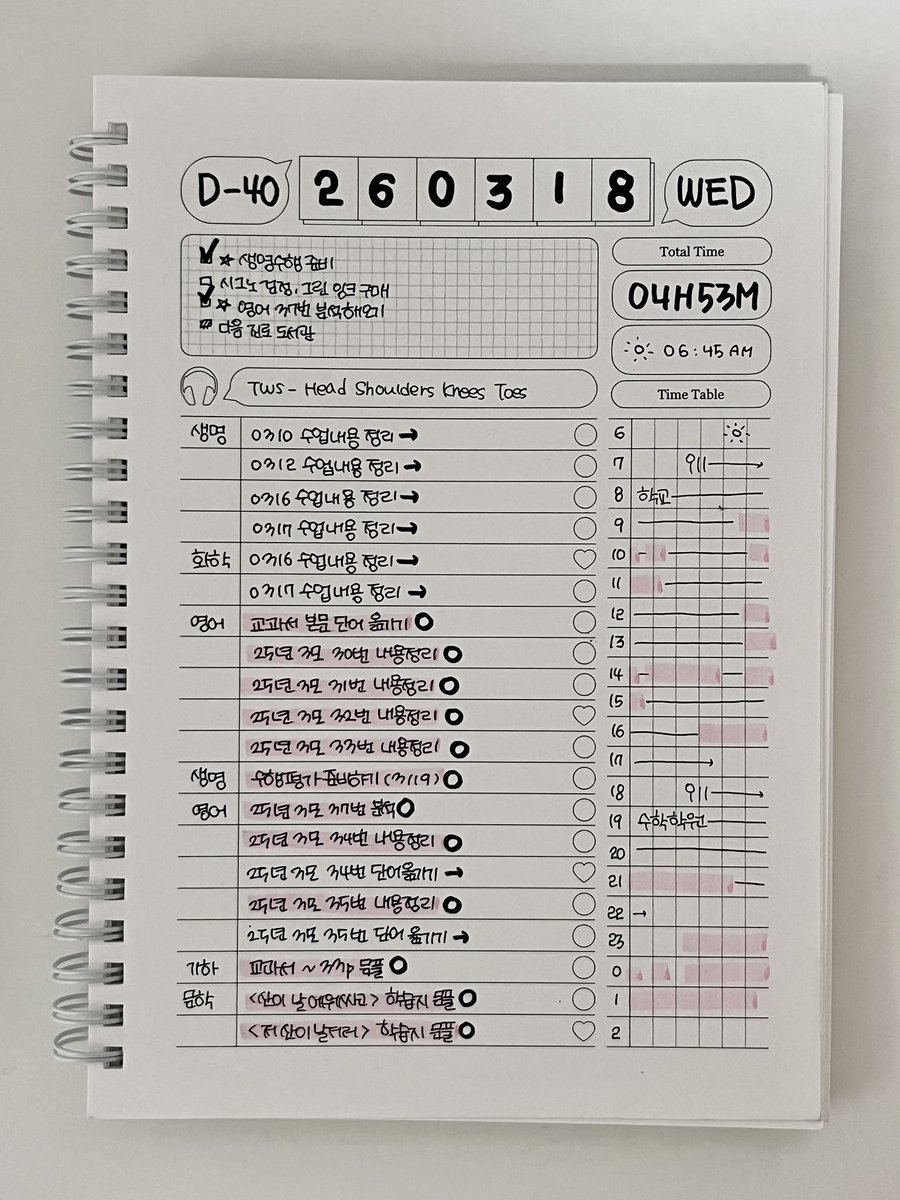 D-40 260318 WED
☆ 생명수행 준비
시그노 검정, 그린 잉크 구매
☆ 영어 37번 분석해오기
다음 진로 도서관
Total Time
04H53M
06:45 AM
TWS - Head Shoulders Knees Toes
Time Table
생명 0310 수업내용 정리 →
0312 수업내용 정리 →
0316 수업내용 정리 →
0317 수업내용 정리 →
화학 0316 수업내용 정리 →
0317 수업내용 정리 →
영어 교과서 본문 단어 옮기기
25년 3모 30번 내용정리
25년 3모 31번 내용정리
25년 3모 32번 내용정리
25년 3모 33번 내용정리
생명 수행평가 준비하기 (3/19)
영어 25년 3모 37번 분석
25년 3모 34번 내용정리
25년 3모 34번 단어옮기기 →
25년 3모 35번 내용정리
25년 3모 35번 단어 옮기기 →
기하 교과서 ~33p 문풀
문학 <산이 날 에워싸고> 학습지 문풀
<저 산이 날더러> 학습지 문풀
6
7
8 학교
9
10
11
12
13
14
15
16
17
18
19 수학학원
20
21
22
23
0
1
2